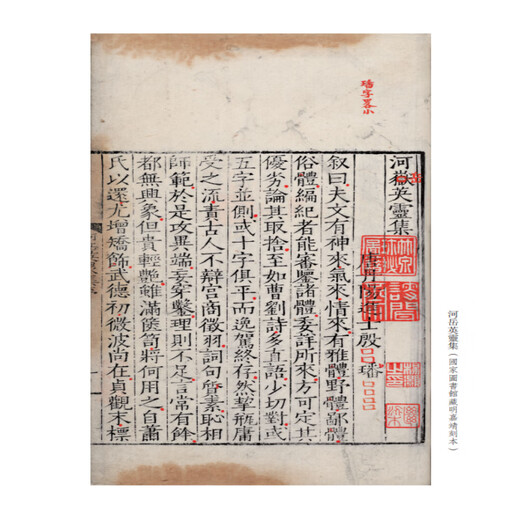 河嶽英靈集
唐丹陽進士殷璠
叙曰夫文有神來氣來情來有雅體野體鄙體
俗體編紀者能審鑒諸體委詳所來方可定其
優劣論其取捨至如曹劉詩多直語少切對或
五字並側或十字俱平而逸駕終存然挈瓶膚
受之流責古人不辯宮商徵羽詞句質素恥相
師範於是攻異端妄穿鑿理則不足言常有餘
都無興象但貴輕艷雖滿篋笥將何用之自蕭
氏以還尤增矯飾武德初微波尚在貞觀末標
河岳英靈集（國家圖書館藏明嘉靖刻本）